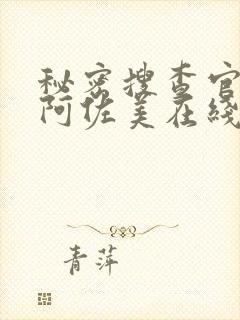 秘密搜查官
阿佐美在线
青萍